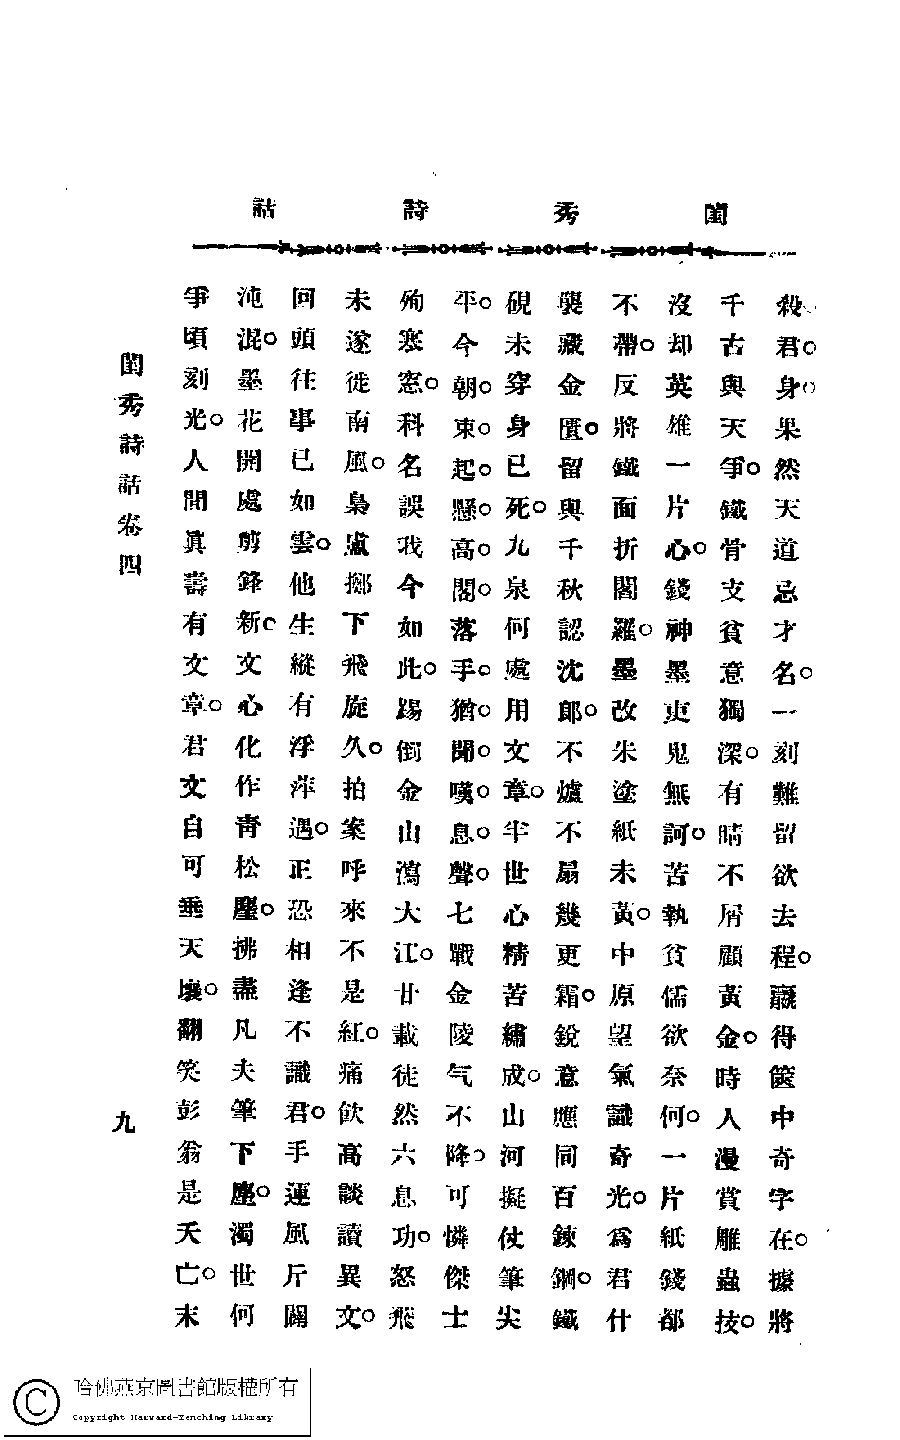 閨秀詩話
殺君。身。果然天道忌才名。一刻難留欲去程。贏得篋中奇字在。據將
千古與天爭。鐵骨支貧意獨深。有睛不屑顧黃金。時人漫賞雕蟲技。
沒却英雄一片心。錢神墨吏鬼無訶。苦執貧儒欲奈何。一片紙錢都
不帶。反將鐵面折閻羅。墨改朱塗紙未黃。中原望氣識奇光。爲君什
襲藏金匱。留與千秋認沈郎。不爐不扇幾更霜。銳意應同百鍊鋼。鐵
硯未穿身已死。九泉何處用文章。半世心精苦繡成。山河擬仗筆尖
平。今朝。束。起。懸。高。閣。落手。猶。聞。嘆。息。聲。七戰金陵气不降。可憐傑士
殉寒窓。科名誤我今如此。踢倒金山瀉大江。廿載徒然六息功。怒飛
未遂徙南風。梟盧擲下飛旋久。拍案呼來不是紅。痛飲高談讀異文。
回頭往事已如雲。他生縱有浮萍遇。正恐相逢不識君。手運風斤闢
沌混。墨花開處剪鋒新。文心化作靑松麈。拂盡凡夫筆下塵。濁世何
爭頃刻光。人間眞壽有文章。君文自可垂天壤。翻笑彭翁是夭亡。末
閨秀詩話卷四
九
哈佛燕京圖書館版權所有
Copyright Harvard-Yenching Library